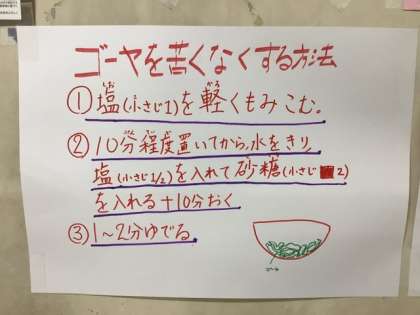 ゴーヤを苦くなくする方法
①塩(小さじ1)を軽くもみこむ。
②10分程度置いてから、水をきり、
塩(小さじ1/2)を入れて砂糖(小さじ2)
を入れる+10分おく
③1~2分ゆでる。